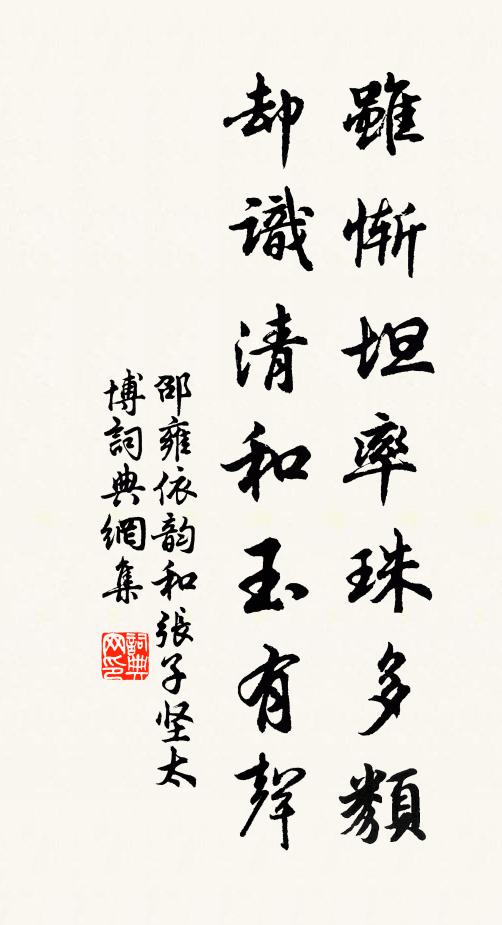 雖慚坦率珠多纇
却識清和玉有聲
邵雍依韵和張子坚太
博詞典網集
詞典网印